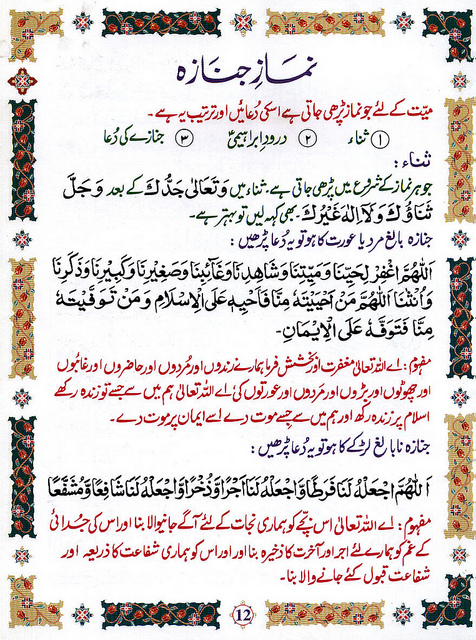 نمازِ جنازہ
میّت کے لئے جو نماز پڑھی جاتی ہے اسکی دُعائیں اور ترتیب یہ ہے۔
① ثناء ② درود ابراہیمیؑ ③ جنازے کی دُعا
ثناء :
جو ہر نماز کے شروع میں پڑھی جاتی ہے۔ ثناء میں وَتَعَالٰی جَدُّكَ کے بعد وَجَلَّ
ثَنَاؤُكَ وَلَآ اِلٰهَ غَيْرُكَ۔ بھی کہہ لیں تو بہتر ہے۔
جنازہ بالغ مرد یا عورت کا ہو تو یہ دُعا پڑھیں :
اَللّٰهُمَّ اغْفِرْ لِحَيِّنَا وَمَيِّتِنَا وَشَاهِدِنَا وَغَآئِبِنَا وَصَغِيْرِنَا وَكَبِيْرِنَا وَذَكَرِنَا
وَاُنْثٰنَا اَللّٰهُمَّ مَنْ اَحْيَيْتَهٗ مِنَّا فَاَحْيِهٖ عَلَى الْاِسْلَامِ وَمَنْ تَوَفَّيْتَهٗ
مِنَّا فَتَوَفَّهٗ عَلَى الْاِيْمَانِ۔
مفہوم : اے اللہ تعالیٰ مغفرت اور بخشش فرما ہمارے زندوں اور مُردوں اور حاضروں اور غائبوں
اور چھوٹوں اور بڑوں اور مَردوں اور عورتوں کی، اے اللہ تعالیٰ ہم میں سے جسے تو زندہ رکھے
اسلام پر زندہ رکھ اور ہم میں سے جسے موت دے اسے ایمان پر موت دے۔
جنازہ نابالغ لڑکے کا ہو تو یہ دُعا پڑھیں :
اَللّٰهُمَّ اجْعَلْهُ لَنَا فَرَطًا وَّاجْعَلْهُ لَنَا اَجْرًا وَّذُخْرًا وَّاجْعَلْهُ لَنَا شَافِعًا وَّمُشَفَّعًا
مفہوم : اے اللہ تعالیٰ اس بچّے کو ہماری نجات کے لئے آگے جانیوالا بنا اور اس کی جُدائی
کے غم کو ہمارے لئے اجر اور آخرت کا ذخیرہ بنا اور اور اس کو ہماری شفاعت کا ذریعہ اور
شفاعت قبول کئے جانے والا بنا۔
12